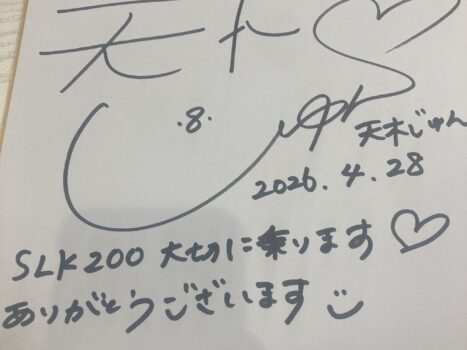 天木
じゅん
·8·
天木じゅん
2026.4.28
SLK200 大切に乗ります♡
ありがとうございます